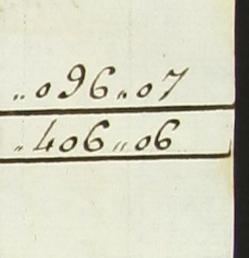 „096„07
„406„06